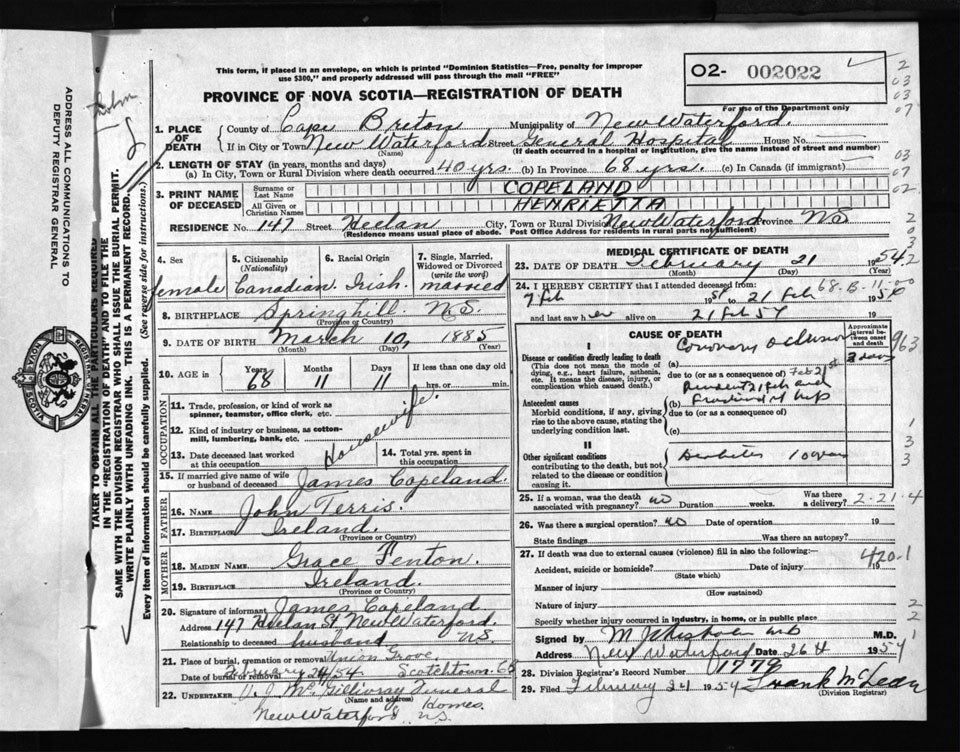 This form, if placed in an envelope, on which is printed "Dominion Statistics—Free, penalty for improper
use $300," and properly addressed will pass through the mail "FREE"
O2- 002022
For use of the Department only
PROVINCE OF NOVA SCOTIA—REGISTRATION OF DEATH
ADDRESS ALL COMMUNICATIONS TO
DEPUTY REGISTRAR GENERAL
TAKER TO OBTAIN ALL THE PARTICULARS REQUIRED
IN THE "REGISTRATION OF DEATH" AND TO FILE THE
SAME WITH THE DIVISION REGISTRAR WHO SHALL ISSUE THE BURIAL PERMIT.
WRITE PLAINLY WITH UNFADING INK. THIS IS A PERMANENT RECORD.
Every item of information should be carefully supplied. (See reverse side for instructions.)
1. PLACE OF DEATH County of Cape Breton Municipality of New Waterford.
If in City or Town New Waterford Street General Hospital House No.
(Name) (If death occurred in a hospital or institution, give the name instead of street and number)
2. LENGTH OF STAY (in years, months and days)
(a) In City, Town or Rural Division where death occurred 40 yrs. (b) In Province 68 yrs. (c) In Canada (if immigrant)
3. PRINT NAME OF DECEASED Surname or Last Name COPELAND
All Given or Christian Names HENRIETTA
RESIDENCE No. 147 Street Heelan City, Town or Rural Division New Waterford Province N.S
(Residence means usual place of abode. Post Office Address for residents in rural parts not sufficient)
4. Sex female
5. Citizenship (Nationality) Canadian
6. Racial Origin Irish.
7. Single, Married, Widowed or Divorced (write the word) married
8. BIRTHPLACE Springhill N.S.
(Province or Country)
9. DATE OF BIRTH March 10, 1885
(Month) (Day) (Year)
10. AGE in Years 68 Months 11 Days 11 If less than one day old hrs. or min.
OCCUPATION
11. Trade, profession, or kind of work as spinner, teamster, office clerk, etc.
12. Kind of industry or business, as cotton-mill, lumbering, bank, etc.
Housewife.
13. Date deceased last worked at this occupation
14. Total yrs. spent in this occupation
15. If married give name of wife or husband of deceased James Copeland.
FATHER
16. NAME John Terris.
17. BIRTHPLACE Ireland.
(Province or Country)
MOTHER
18. MAIDEN NAME Grace Fenton.
19. BIRTHPLACE Ireland.
(Province or Country)
20. Signature of informant James Copeland
Address 147 Heelan St. New Waterford.
Relationship to deceased husband N.S.
21. Place of burial, cremation or removal Union Grove
Date of burial or removal February 24/54 Scotchtown C.B
22. UNDERTAKER V. J. McGillivray Funeral
(Name and address) Homes.
New Waterford N.S.
MEDICAL CERTIFICATE OF DEATH
23. DATE OF DEATH February 21 1954
(Month) (Day) (Year)
24. I HEREBY CERTIFY that I attended deceased from: 68-B-11-00
7 Feb 1954 to 21 Feb 1954
and last saw her alive on 21 Feb 54 19
CAUSE OF DEATH
Approximate interval between onset and death
I
Disease or condition directly leading to death
(This does not mean the mode of dying, e.g., heart failure, asthenia, etc. It means the disease, injury, or complication which caused death.)
(a) Coronary occlusion 2 days
due to (or as a consequence of)
Antecedent causes
Morbid conditions, if any, giving rise to the above cause, stating the underlying condition last.
(b)
due to (or as a consequence of)
(c)
II
Other significant conditions
contributing to the death, but not related to the disease or condition causing it.
Diabetes 10 years
25. If a woman, was the death associated with pregnancy? no Duration weeks. Was there a delivery? 2-21-4
26. Was there a surgical operation? no Date of operation 19
State findings Was there an autopsy?
27. If death was due to external causes (violence) fill in also the following: 420-1
Accident, suicide or homicide? Date of injury 19
(State which)
Manner of injury
(How sustained)
Nature of injury
Specify whether injury occurred in industry, in home, or in public place
Signed by M.D.
Address New Waterford Date 26 1954
28. Division Registrar's Record Number 1779
29. Filed February 24 1954 Frank McLean
(Division Registrar)